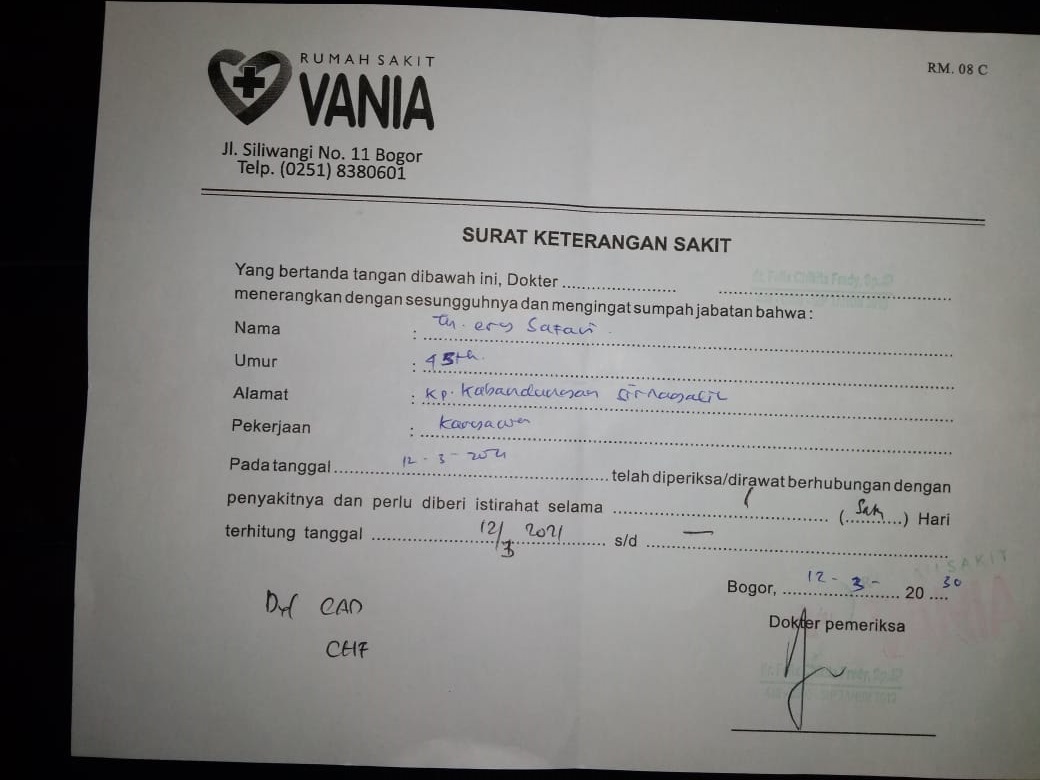 RUMAH SAKIT
VANIA
RM. 08 C
Jl. Siliwangi No. 11 Bogor
Telp. (0251) 8380601
SURAT KETERANGAN SAKIT
Yang bertanda tangan dibawah ini, Dokter
menerangkan dengan sesungguhnya dan mengingat sumpah jabatan bahwa :
Nama : Tn. ery Safari
Umur : 45th.
Alamat : Kp. Kabandungan
Pekerjaan : Karyawan
Pada tanggal 12 - 3 - 2021 telah diperiksa/dirawat berhubungan dengan
penyakitnya dan perlu diberi istirahat selama 1 (Satu) Hari
terhitung tanggal 12/3 2021 s/d —
Bogor, 12 - 3 - 20 30
Dokter pemeriksa
CAD
CHF